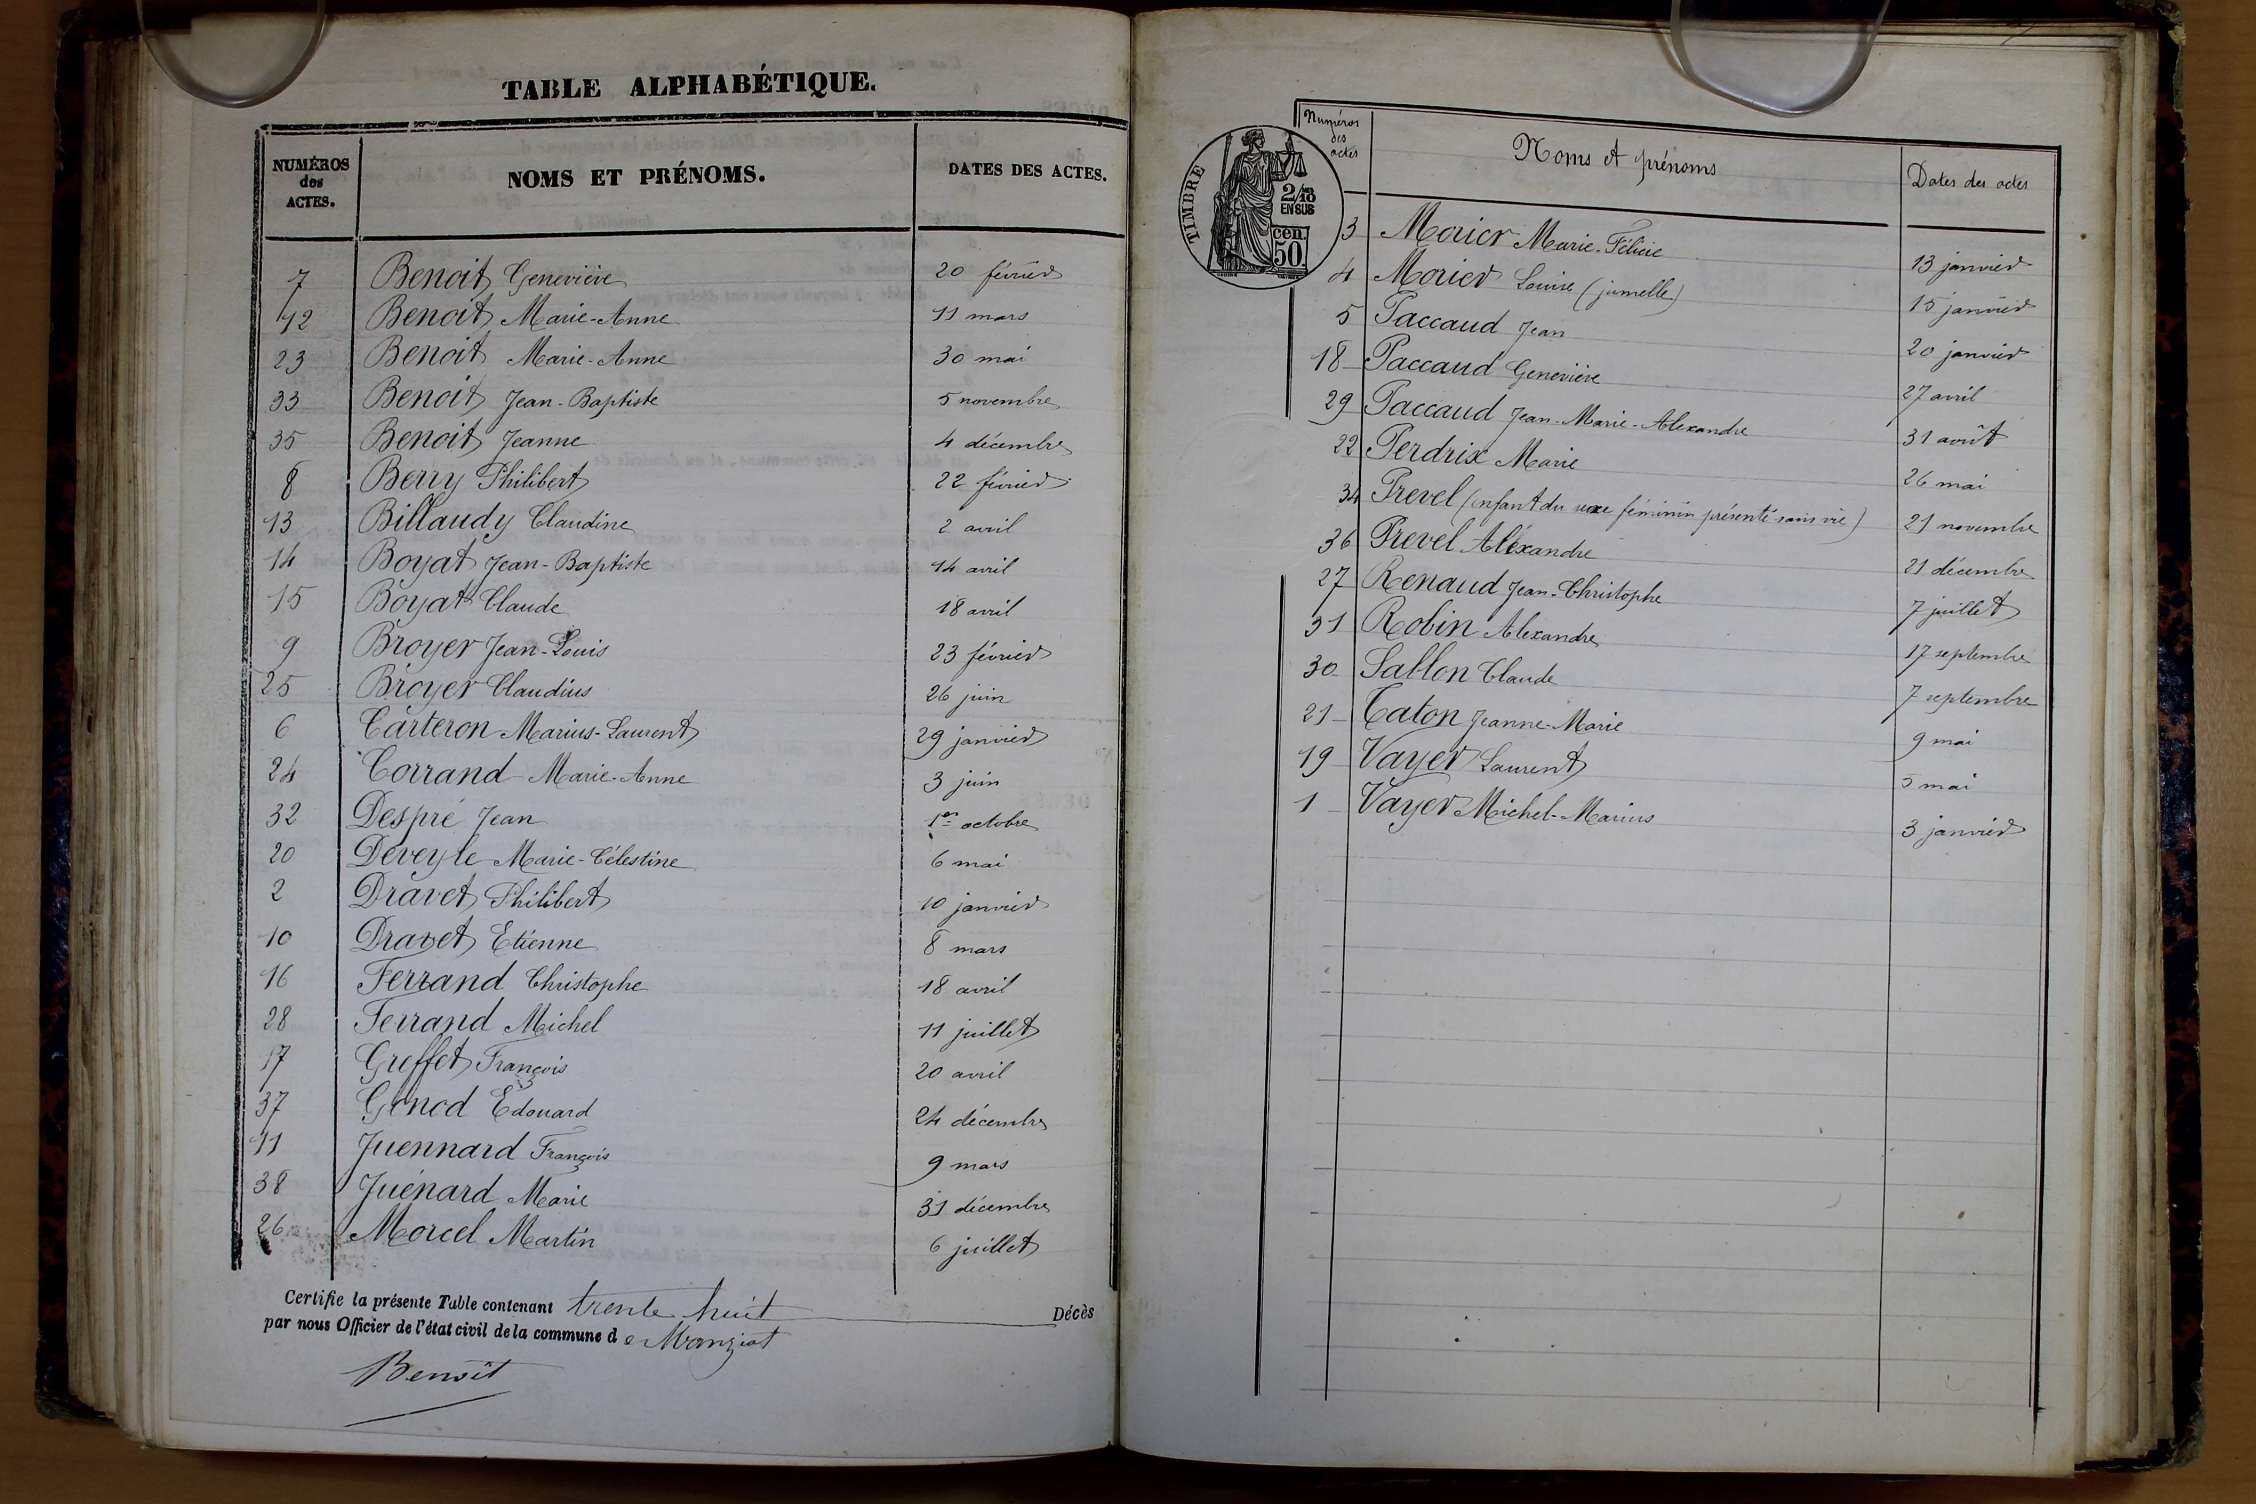 TABLE ALPHABÉTIQUE.
NUMÉROS des ACTES. NOMS ET PRÉNOMS. DATES DES ACTES.
7 Benoit Geneviève 20 février
12 Benoit Marie-Anne 11 mars
23 Benoit Marie-Anne 30 mai
33 Benoit Jean-Baptiste 5 novembre
35 Benoit Jeanne 4 décembre
8 Berry Philibert 22 février
13 Billaudy Claudine 2 avril
14 Boyat Jean-Baptiste 14 avril
15 Boyat Claude 18 avril
9 Broyer Jean-Louis 23 février
25 Broyer Claudius 26 juin
6 Carteron Marius-Laurent 29 janvier
24 Corrand Marie-Anne 3 juin
32 Despré Jean 1er octobre
20 Deveyle Marie-Célestine 6 mai
2 Dravet Philibert 10 janvier
10 Dravet Etienne 8 mars
16 Ferrand Christophe 18 avril
28 Ferrand Michel 11 juillet
17 Greffet François 20 avril
37 Genod Edouard 24 décembre
11 Juennard François 9 mars
38 Juénard Marie 31 décembre
26 Morcel Martin 6 juillet
Certifie la présente Table contenant trente huit Décès
par nous Officier de l'état civil de la commune d e Manziat
Benoît
TIMBRE
2/10
EN SUS
50 cen.
Numéros des actes Noms et prénoms Dates des actes
3 Morier Marie-Félicie 13 janvier
4 Morier Louise (jumelle) 15 janvier
5 Paccaud Jean 20 janvier
18 Paccaud Geneviève 27 avril
29 Paccaud Jean-Marie-Alexandre 31 août
22 Perdrix Marie 26 mai
34 Prevel (enfant du sexe féminin présenté sans vie) 21 novembre
36 Prevel Aléxandre 21 décembre
27 Renaud Jean-Christophe 7 juillet
31 Robin Alexandre 17 septembre
30 Sablon Claude 7 septembre
21 Caton Jeanne-Marie 9 mai
19 Vayer Laurent 5 mai
1 Vayer Michel-Marius 3 janvier